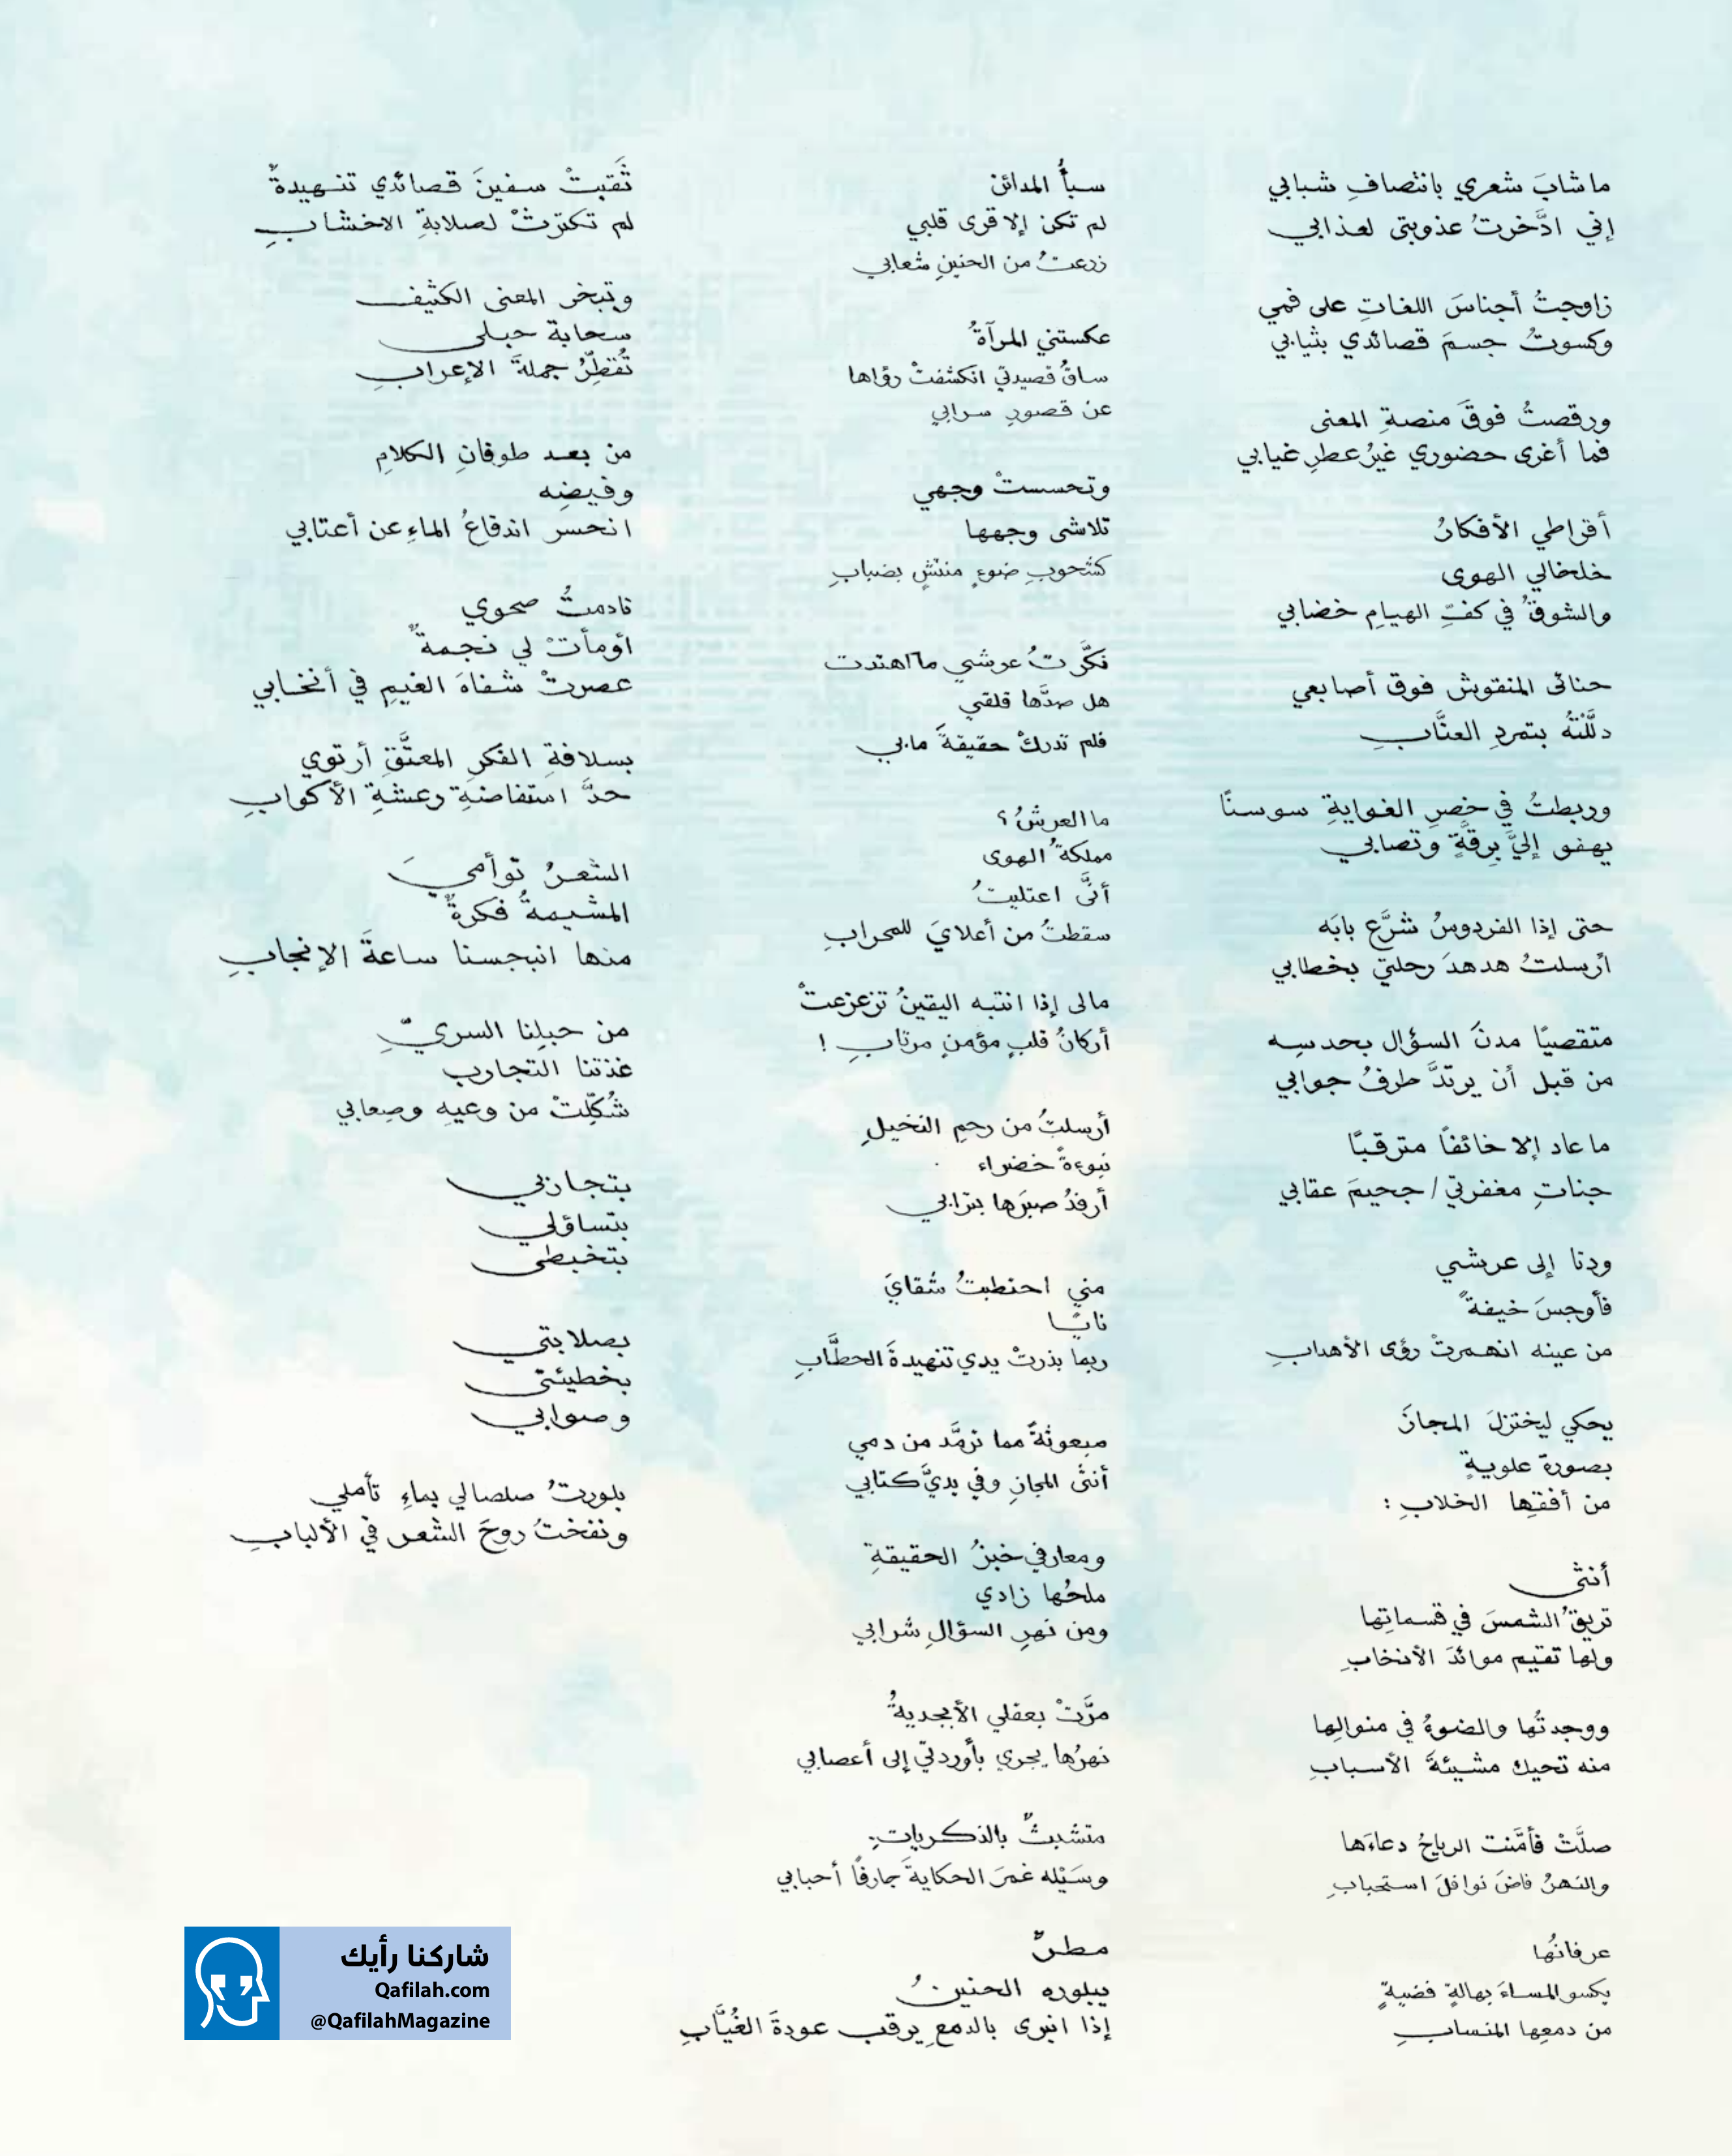 ما شابَ شعري بانتصافِ شبابي
إني ادَّخرتُ عذوبتي لعذابي
زاوجتُ أجناسَ اللغاتِ على فمي
وكسوتُ جسمَ قصائدي بثيابي
ورقصتُ فوقَ منصةِ المعنى
فما أغرى حضوري غيرُ عطرِ غيابي
أقراطي الأفكارُ
خلخالي الهوى
والشوقُ في كفِّ الهيامِ خضابي
حنائى المنقوش فوق أصابعي
دلَّلتهُ بتمردِ العنَّابِ
وربطتُ في خصرِ الغوايةِ سوسنًا
يهفو إليَّ برقَّةٍ وتصابي
حتى إذا الفردوسُ شرَّع بابَه
أرسلتُ هدهدَ رحلتي بخطابي
متقصيًا مدنَ السؤالِ بحدسِه
من قبل أن يرتدَّ طرفُ جوابي
ما عاد إلا خائفًا مترقبًا
جناتِ مغفرتي / جحيمَ عقابي
ورنا إلى عرشي
فأوجسَ خيفةً
من عينه انهمرتْ رؤى الأهدابِ
يحكي ليختزلَ المجازَ
بصورةٍ علويةٍ
من أفقِها الخلابِ :
أنثى
تريقُ الشمسَ في قسماتِها
ولها تقيم موائدَ الأنخابِ
ووجدتُها والضوءُ في منوالِها
منه تحيك مشيئةَ الأسبابِ
صلَّتْ فأمَّنت الرياحُ دعاءَها
والنهرُ فاضَ نوافلَ استحبابِ
عرفانُها
يكسو المساءَ بهالةٍ فضيةٍ
من دمعِها المنسابِ
سبأُ المدائن
لم تكن إلا قرى قلبي
زرعتُ من الحنينِ شعابي
عكستني المرآةُ
ساقُ قصيدتي انكشفتْ رؤاها
عن قصورِ سرابي
وتحسستْ وجهي
تلاشى وجهها
كشحوبِ ضوءٍ منتشٍ بضبابِ
نكَّرتُ عرشي ما اهتدت
هل صدَّها قلقي
فلم تدركْ حقيقةَ مابي
ما العرشُ ؟
مملكةُ الهوى
أنَّى اعتليتُ
سقطتُ من أعلايَ للمحرابِ
مالى إذا انتبه اليقينُ تزعزعتْ
أركانُ قلبٍ مؤمنٍ مرتابِ !
أرسلتُ من رحمِ النخيلِ
نبوءةً خضراء
أرفدُ صبرَها بترابي
مني احتطبتُ شقايَ
نايًا
ربما بذرتْ يدي تنهيدةَ الحطَّابِ
مبعوثةً مما ترمَّد من دمي
أنثى المجازِ وفي يديَّ كتابي
ومعارفي خبزُ الحقيقةِ
ملحُها زادي
ومن نهرِ السؤالِ شرابي
مرَّتْ بعقلي الأبجديةُ
نهرُها يجري بأوردتي إلى أعصابي
متشبثٌ بالذكرياتِ
وسَيْله غمرَ الحكايةَ جارفًا أحبابي
مطرٌ
يبلوره الحنينُ
إذا انبرى بالدمعِ يرقب عودةَ الغُيَّابِ
ثَقبتْ سفينَ قصائدي تنهيدةٌ
لم تكترثْ لصلابةِ الاخشابِ
وتبخر المعنى الكثيف
سحابة حبلى
تُقطِّرُ جملةَ الإعرابِ
من بعد طوفانِ الكلامِ
وفيضِه
انحسر اندفاعُ الماءِ عن أعتابي
نادمتُ صحوي
أومأتْ لي نجمةٌ
عصرتْ شفاهَ الغيمِ في أنخابي
بسلافةِ الفكرِ المعتَّقِ أرتوي
حدَّ استفاضةِ رعشةِ الأكوابِ
الشعرُ توأميَ
المشيمةُ فكرةٌ
منها انبجسنا ساعةَ الإنجابِ
من حبلِنا السريِّ
غذتنا التجارب
شُكِّلتْ من وعيه وصعابي
بتجاربي
بتساؤلي
بتخبطي
بصلابتي
بخطيئتي
وصوابي
بلورتُ صلصالي بماءِ تأملي
ونفختُ روحَ الشعر في الألبابِ
شاركنا رأيك
Qafilah.com
@QafilahMagazine